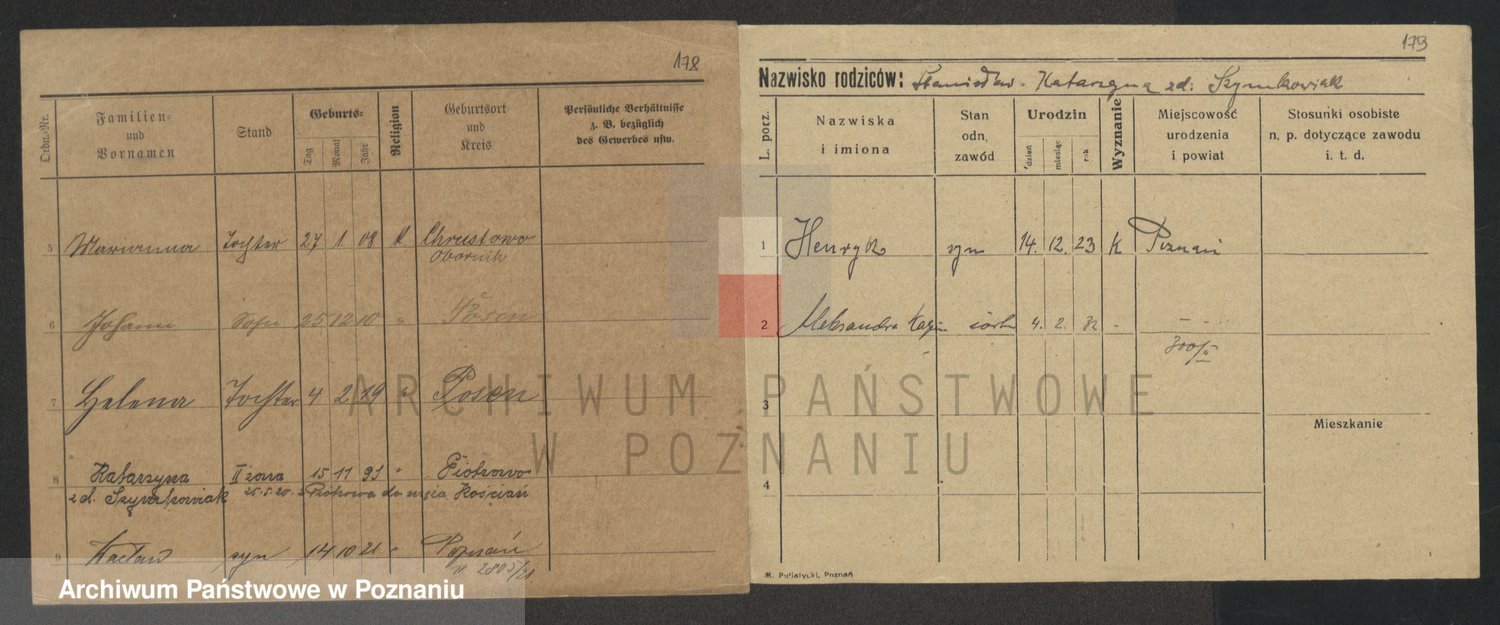 178
Ordn.-Nr.
Familien- und Vornamen
Stand
Geburts-
Tag Monat Jahr
Religion
Geburtsort und Kreis
Persönliche Verhältnisse z. B. bezüglich des Gewerbes usw.
5 Marianna Tochter 27 1 08 k. Chrustowo
Obornik
6 Johann Sohn 25 12 10 " Posen
7 Helena Tochter 4 2 19 " Posen
8 Katarzyna II żona 15 11 91 " Piotrowo
z d. Szymkowiak 25.5.20. z Piotrowa do męża Kościan
9 Wacław syn 14 10 21 " Poznań
2805/21
179
Nazwisko rodziców: Stanisław - Katarzyna zd. Szymkowiak
L. porz.
Nazwiska i imiona
Stan odn. zawód
Urodzin
dzień miesiąc rok
Wyznanie
Miejscowość urodzenia i powiat
Stosunki osobiste n. p. dotyczące zawodu i. t. d.
1 Henryk syn 14. 12. 23 k Poznań
2 Aleksandra córka 4. 2. 32 - - -
3
Mieszkanie
4
M. Putiatycki, Poznań
ARCHIWUM PAŃSTWOWE
W POZNANIU
Archiwum Państwowe w Poznaniu